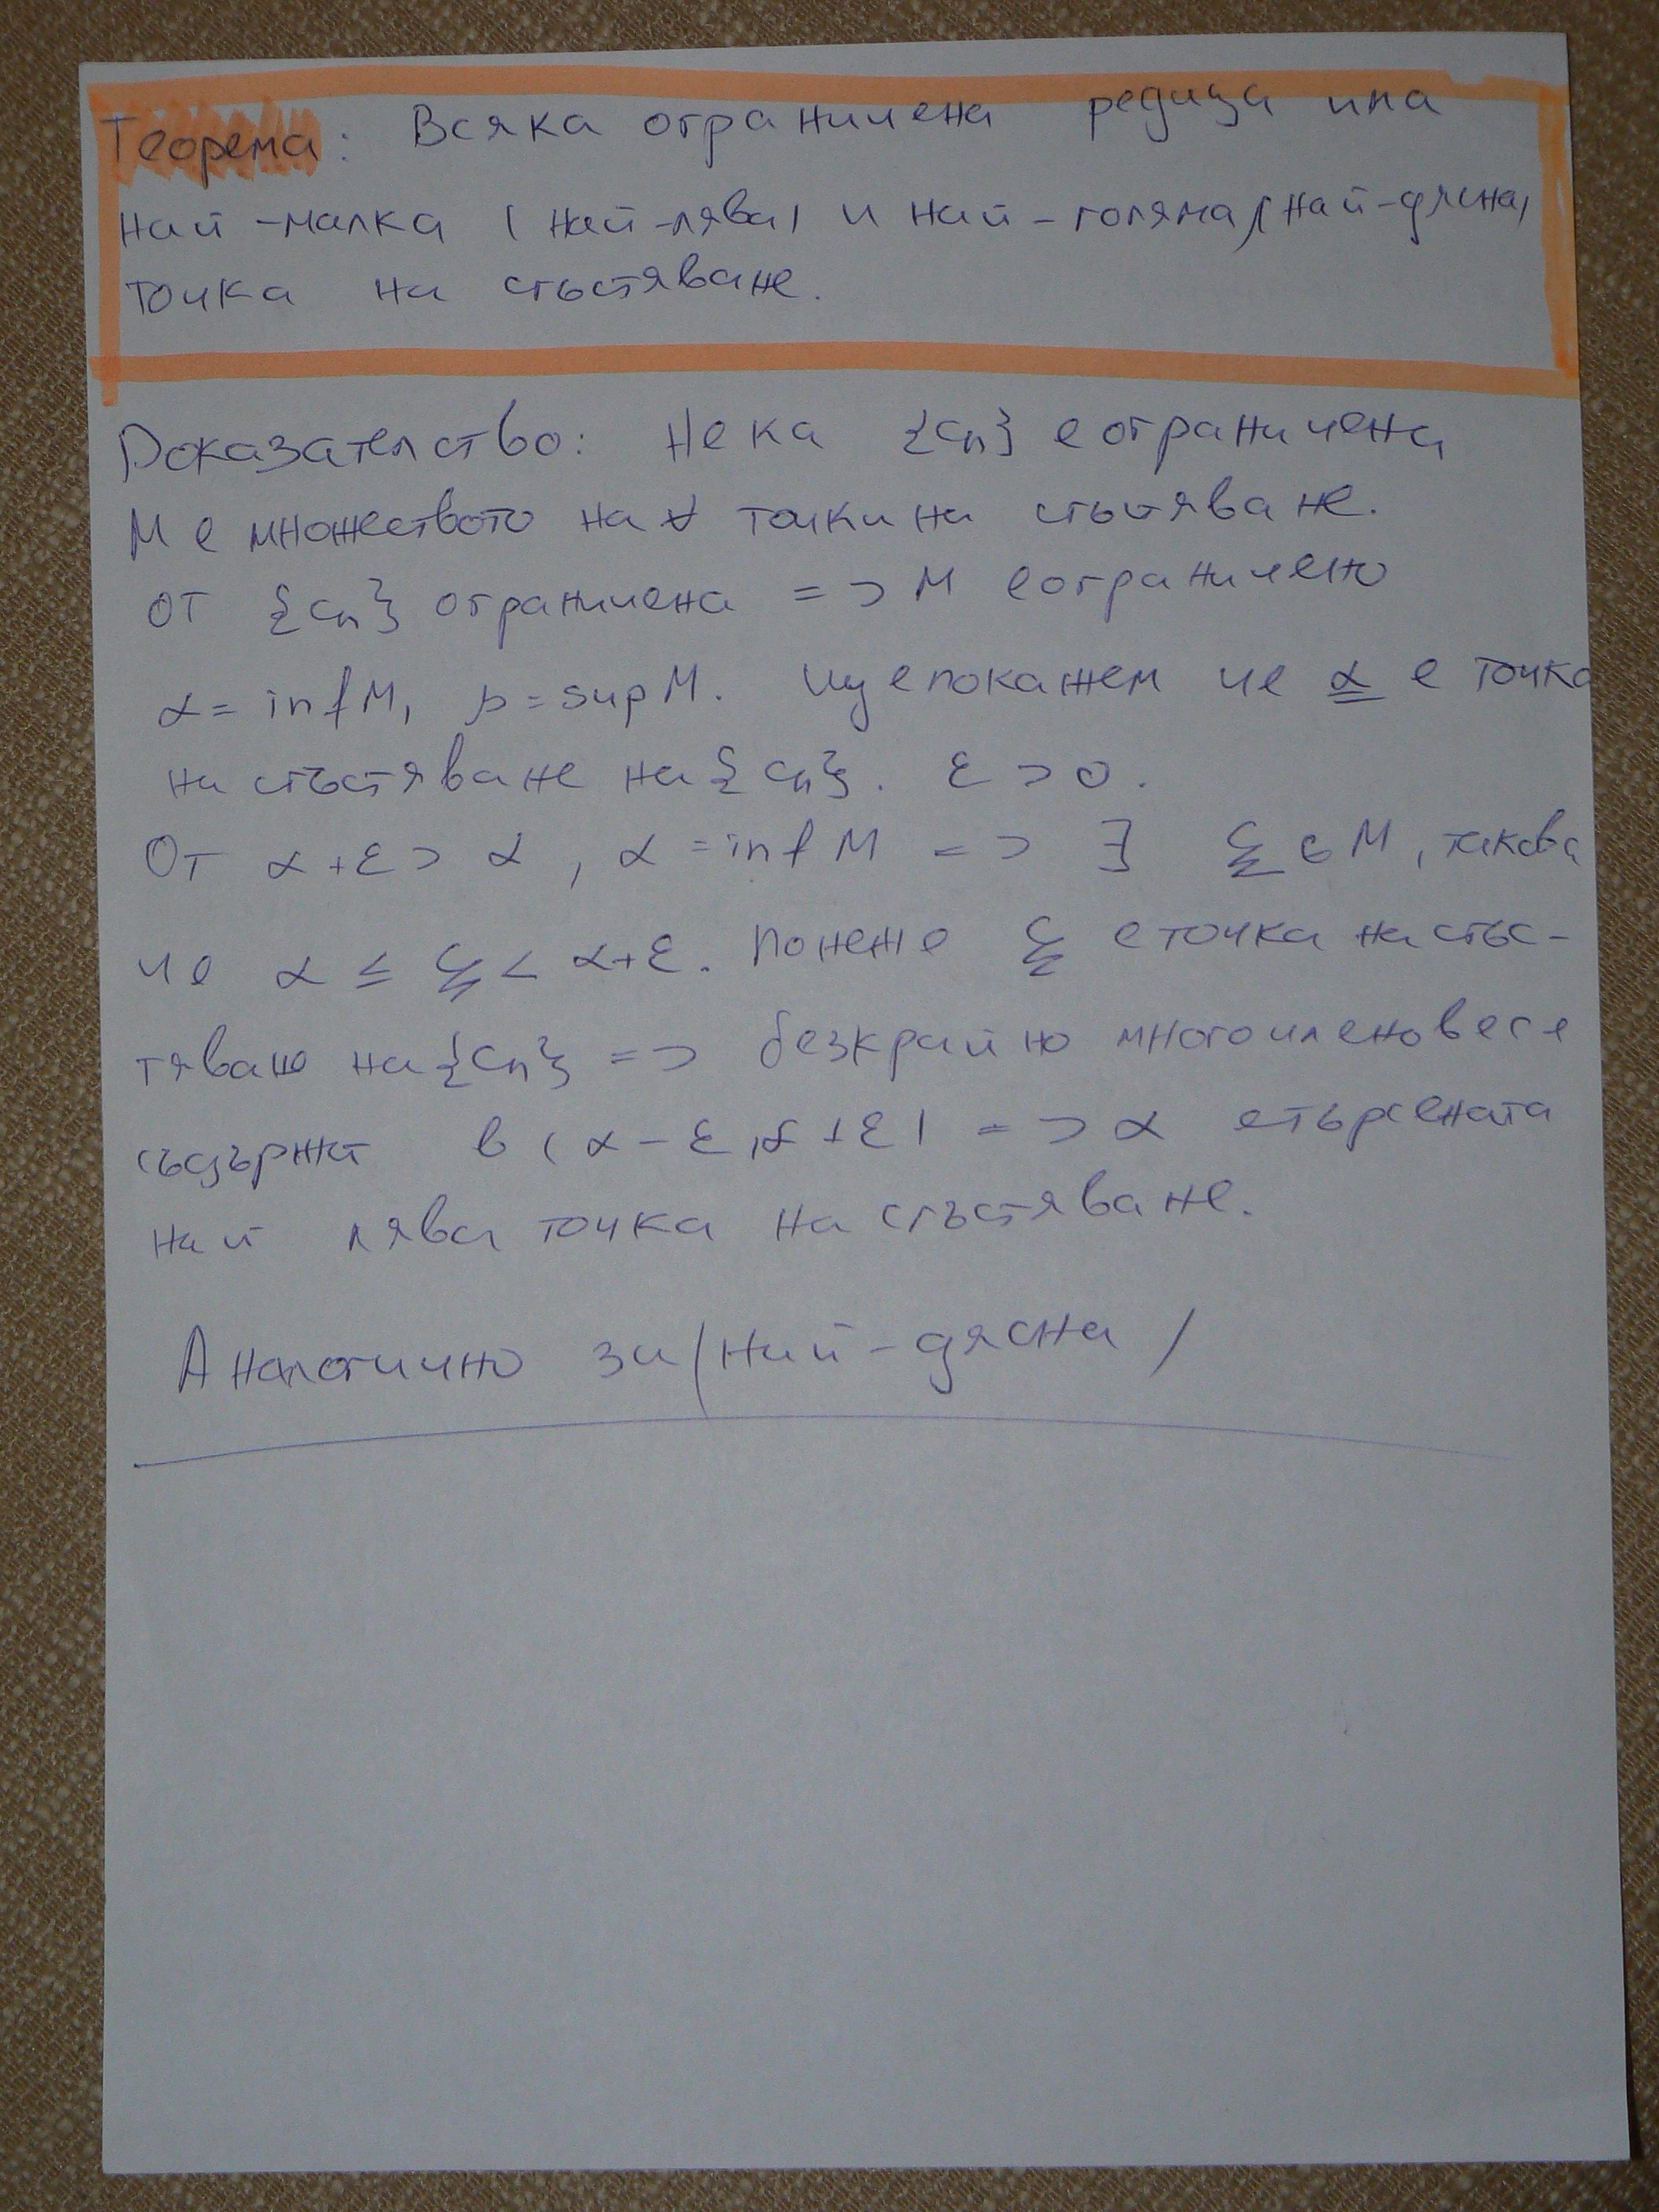 Теорема: Всяка ограничена редица има
най-малка (най-лява) и най-голяма (най-дясна)
точка на сгъстяване.
Доказателство: Нека {cn} е ограничена
М е множеството на ∀ точки на сгъстяване.
от {cn} ограничена => М е ограничено
α = inf M, β = sup M. Ще покажем че α е точка
на сгъстяване на {cn}. ε > 0.
От α+ε > α, α = inf M => ∃ ξ ∈ M, такова
че α ≤ ξ < α+ε. Понеже ξ е точка на сгъс-
тяване на {cn} => безкрайно много членове се
съдържат в (α-ε, α+ε) => α е търсената
най лява точка на сгъстяване.
Аналогично за /най-дясна/